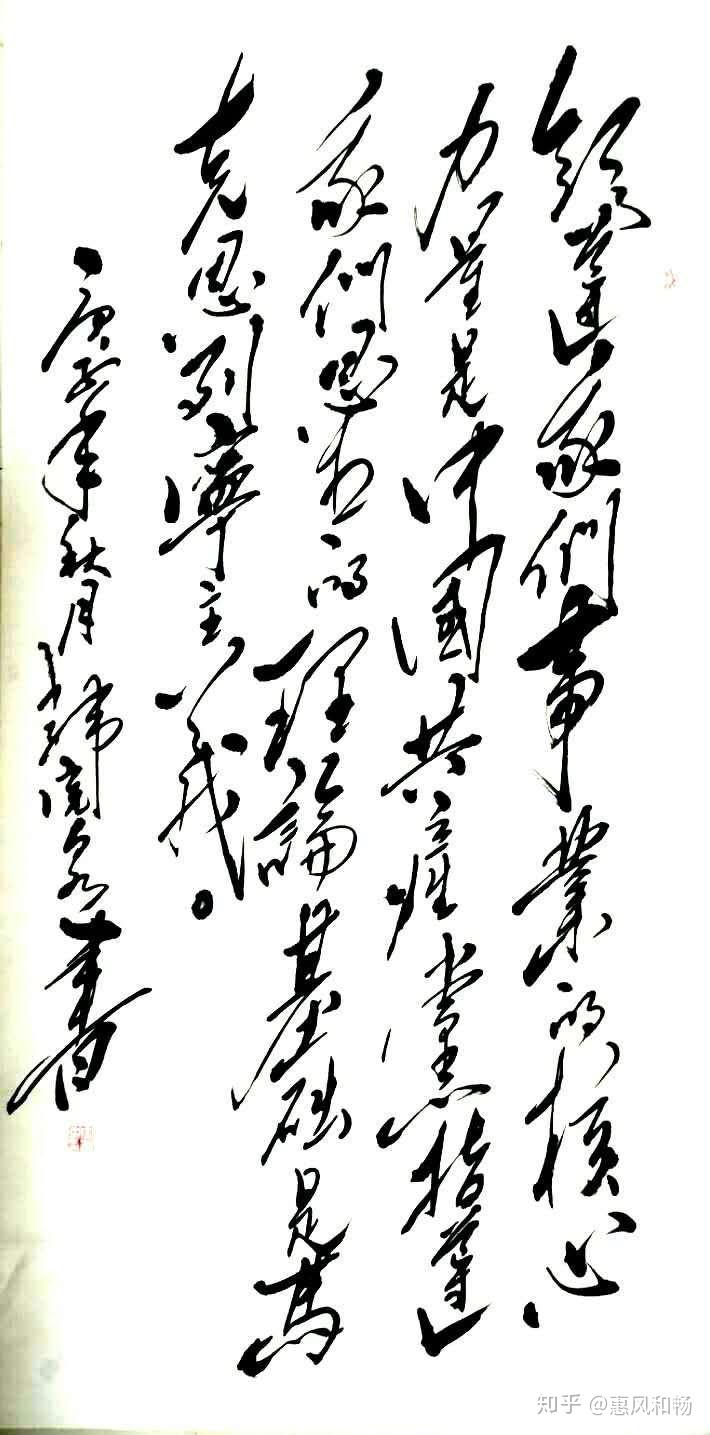 領導我們事業的核心
力量是中國共產黨指導
我們思想的理論基礎是馬
克思列寧主義。
庚子年秋月 書
知乎 @惠风和畅